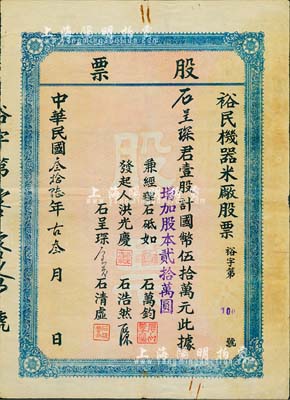 股票
裕民機器米廠股票 裕字第 100 號
石呈琛君壹股計國幣伍拾萬元此據
增加股本貳拾萬圓
兼經理石砥如 石萬鈞
發起人洪光慶 石浩然
石呈琛 石清虛
中華民國叁拾陸年古叁月 日